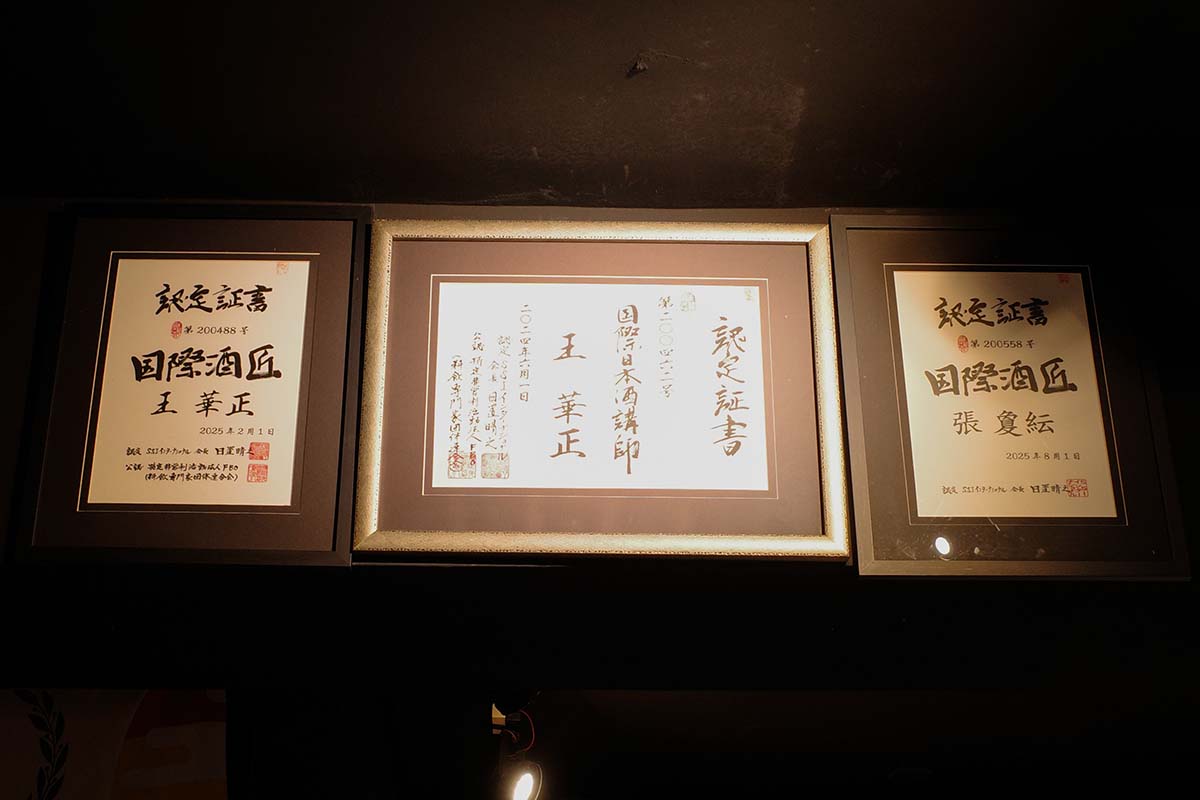 認定証書
第200488号
国際酒匠
王 華正
2025年2月1日
認定 SSIインターナショナル 会長 日置晴之
公認 特定非営利活動法人FBO
(料飲専門家団体連合会)
認定証書
第二〇〇四六二号
国際日本酒講師
王 華正
二〇二四年六月一日
認定 SSIインターナショナル
会長 日置晴之
公認 特定非営利活動法人FBO
(料飲専門家団体連合会)
認定証書
第200558号
国際酒匠
張 夐紜
2025年8月1日
認定 SSIインターナショナル 会長 日置晴之